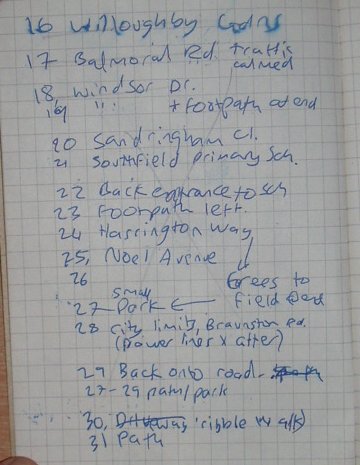 16 Willoughby Gdns
17 Balmoral Rd. traffic calmed
18, Windsor Dr.
19 " " + footpath at end
20 Sandringham Cl.
21 Southfield Primary Sch.
22 Back entrance to sch
23 Footpath left.
24 Harrington Way
25, Noel Avenue
26
trees to field
27 small Park
28 city limit, Braunston Rd.
(power lines x after)
29 Back onto road -
27-29 path/park
30, Driveway (ribble walk)
31 Path